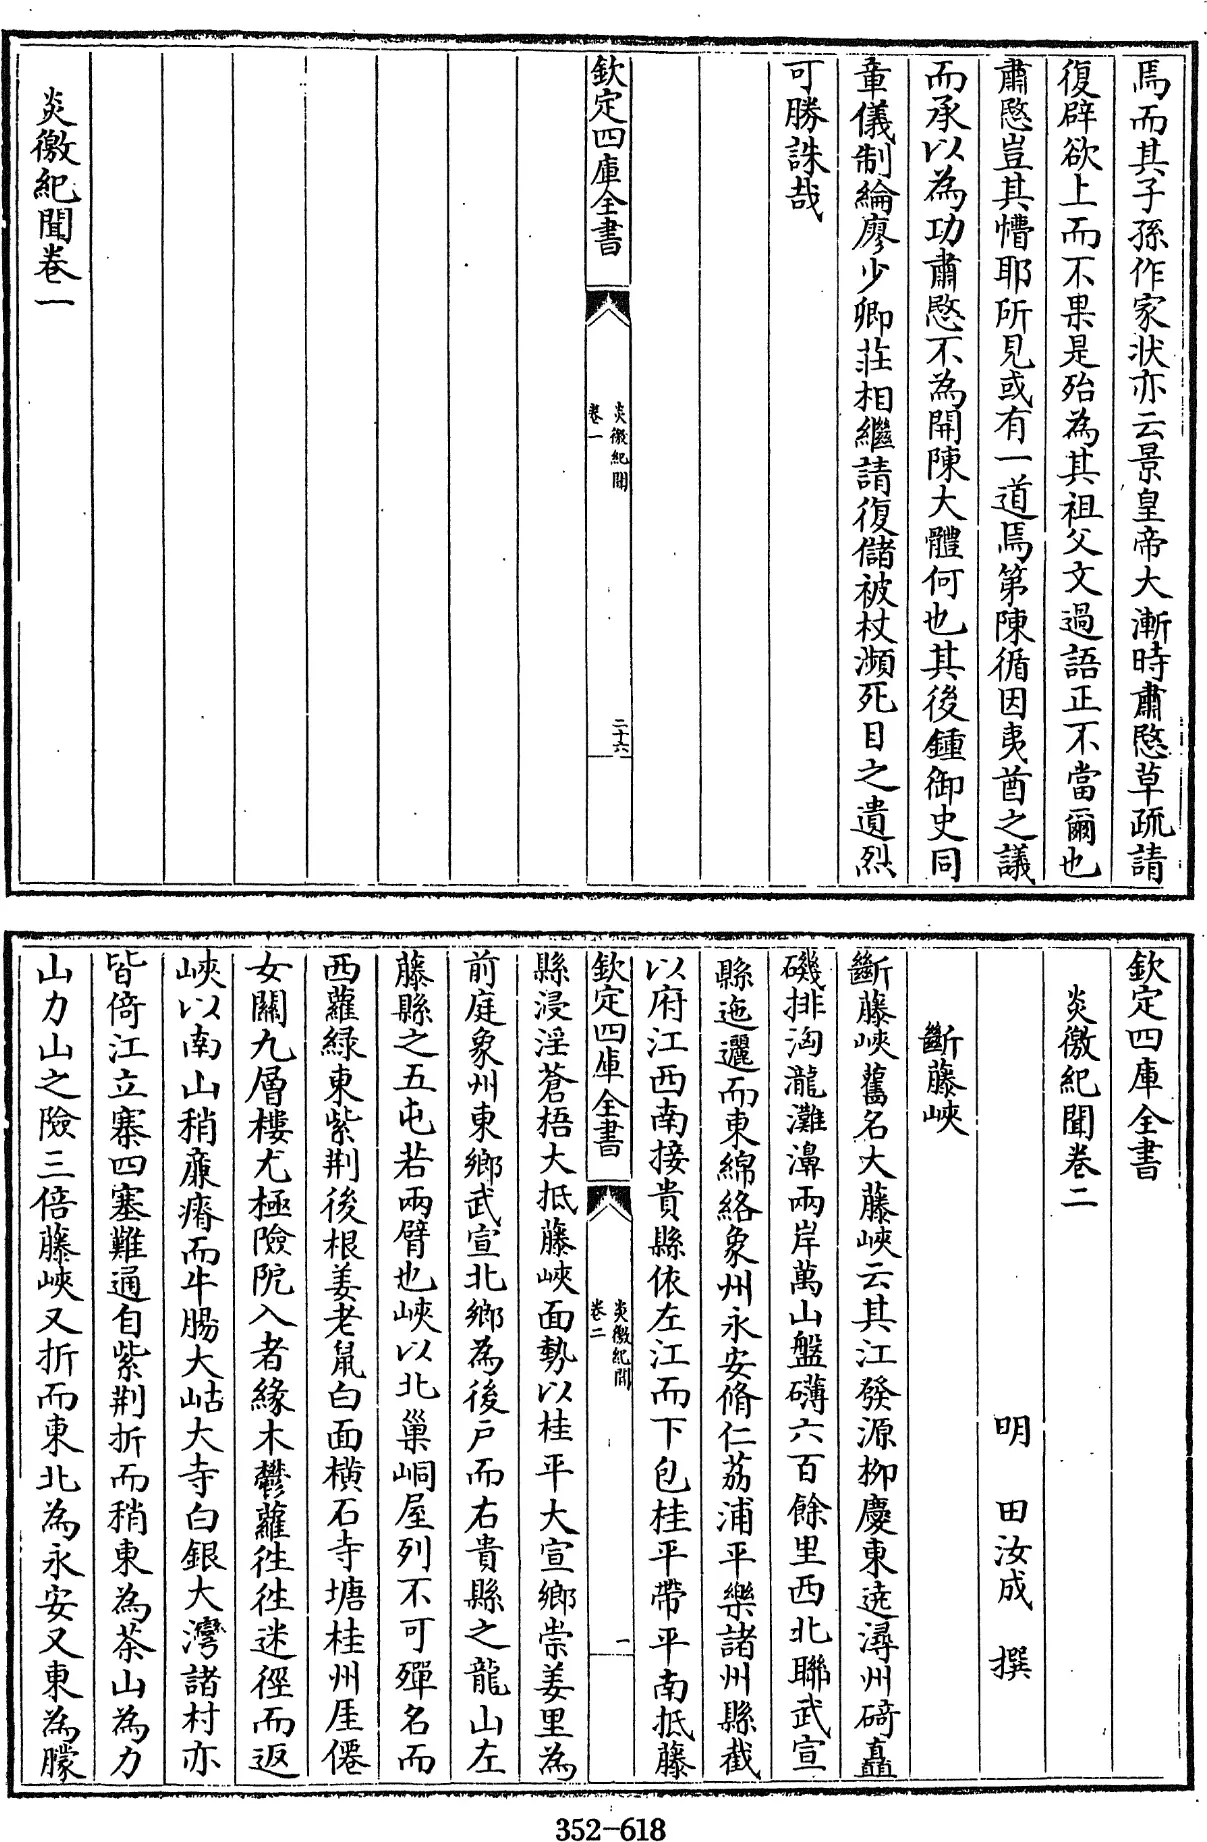 焉而其子孫作家狀亦云景皇帝大漸時肅愍草疏請
復辟欲上而不果是殆為其祖父文過語正不當爾也
肅愍豈其懵耶所見或有一道焉第陳循因夷酋之議
而承以為功肅愍不為開陳大體何也其後鍾御史同
章儀制綸廖少卿莊相繼請復儲被杖瀕死目之遺烈
可勝誅哉
欽定四庫全書
炎徼紀聞
卷一
二十六
炎徼紀聞卷一
欽定四庫全書
炎徼紀聞卷二
明 田汝成 撰
斷藤峽
斷藤峽舊名大藤峽云其江發源柳慶東遶潯州碕矗
磯排洶瀧灘濞兩岸萬山盤礴六百餘里西北聯武宣
縣迤邐而東綿絡象州永安脩仁荔浦平樂諸州縣截
以府江西南接貴縣依左江而下包桂平帶平南抵藤
欽定四庫全書
炎徼紀聞
卷二
一
縣浸淫蒼梧大抵藤峽面勢以桂平大宣鄉崇姜里為
前庭象州東鄉武宣北鄉為後戶而右貴縣之龍山左
藤縣之五屯若兩臂也峽以北巢峒屋列不可殫名而
西蘿緑東紫荆後根姜老鼠白面橫石寺塘桂州厓僊
女關九層樓尤極險阨入者緣木欎蘿徃徃迷徑而返
峽以南山稍亷瘠而牛腸大岵大寺白銀大灣諸村亦
皆倚江立寨四塞難通自紫荆折而稍東為茶山為力
山力山之險三倍藤峽又折而東北為永安又東為朦
352-618